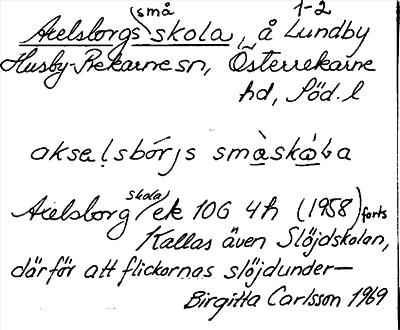 små 1-2
Axelsborgs skola, å Lundby
Husby-Rekarne sn, Österrekarne
hd, Söd. l
aksel̥sbórjs smàskòla
Axelsborg skola/ ek 10G 4h (1958) forts
Kallas även Slöjdskolan,
därför att flickornas slöjdunder-
Birgitta Carlsson 1969